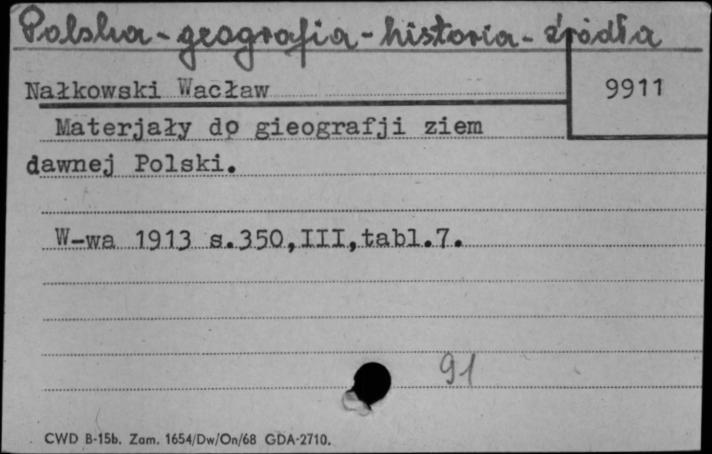 Polska - geografia - historia - źródła
Nałkowski Wacław
9911
Materjały do gieografji ziem
dawnej Polski.
W-wa 1913 s.350,III,tabl.7.
91
CWD B-15b. Zam. 1654/Dw/On/68 GDA-2710.